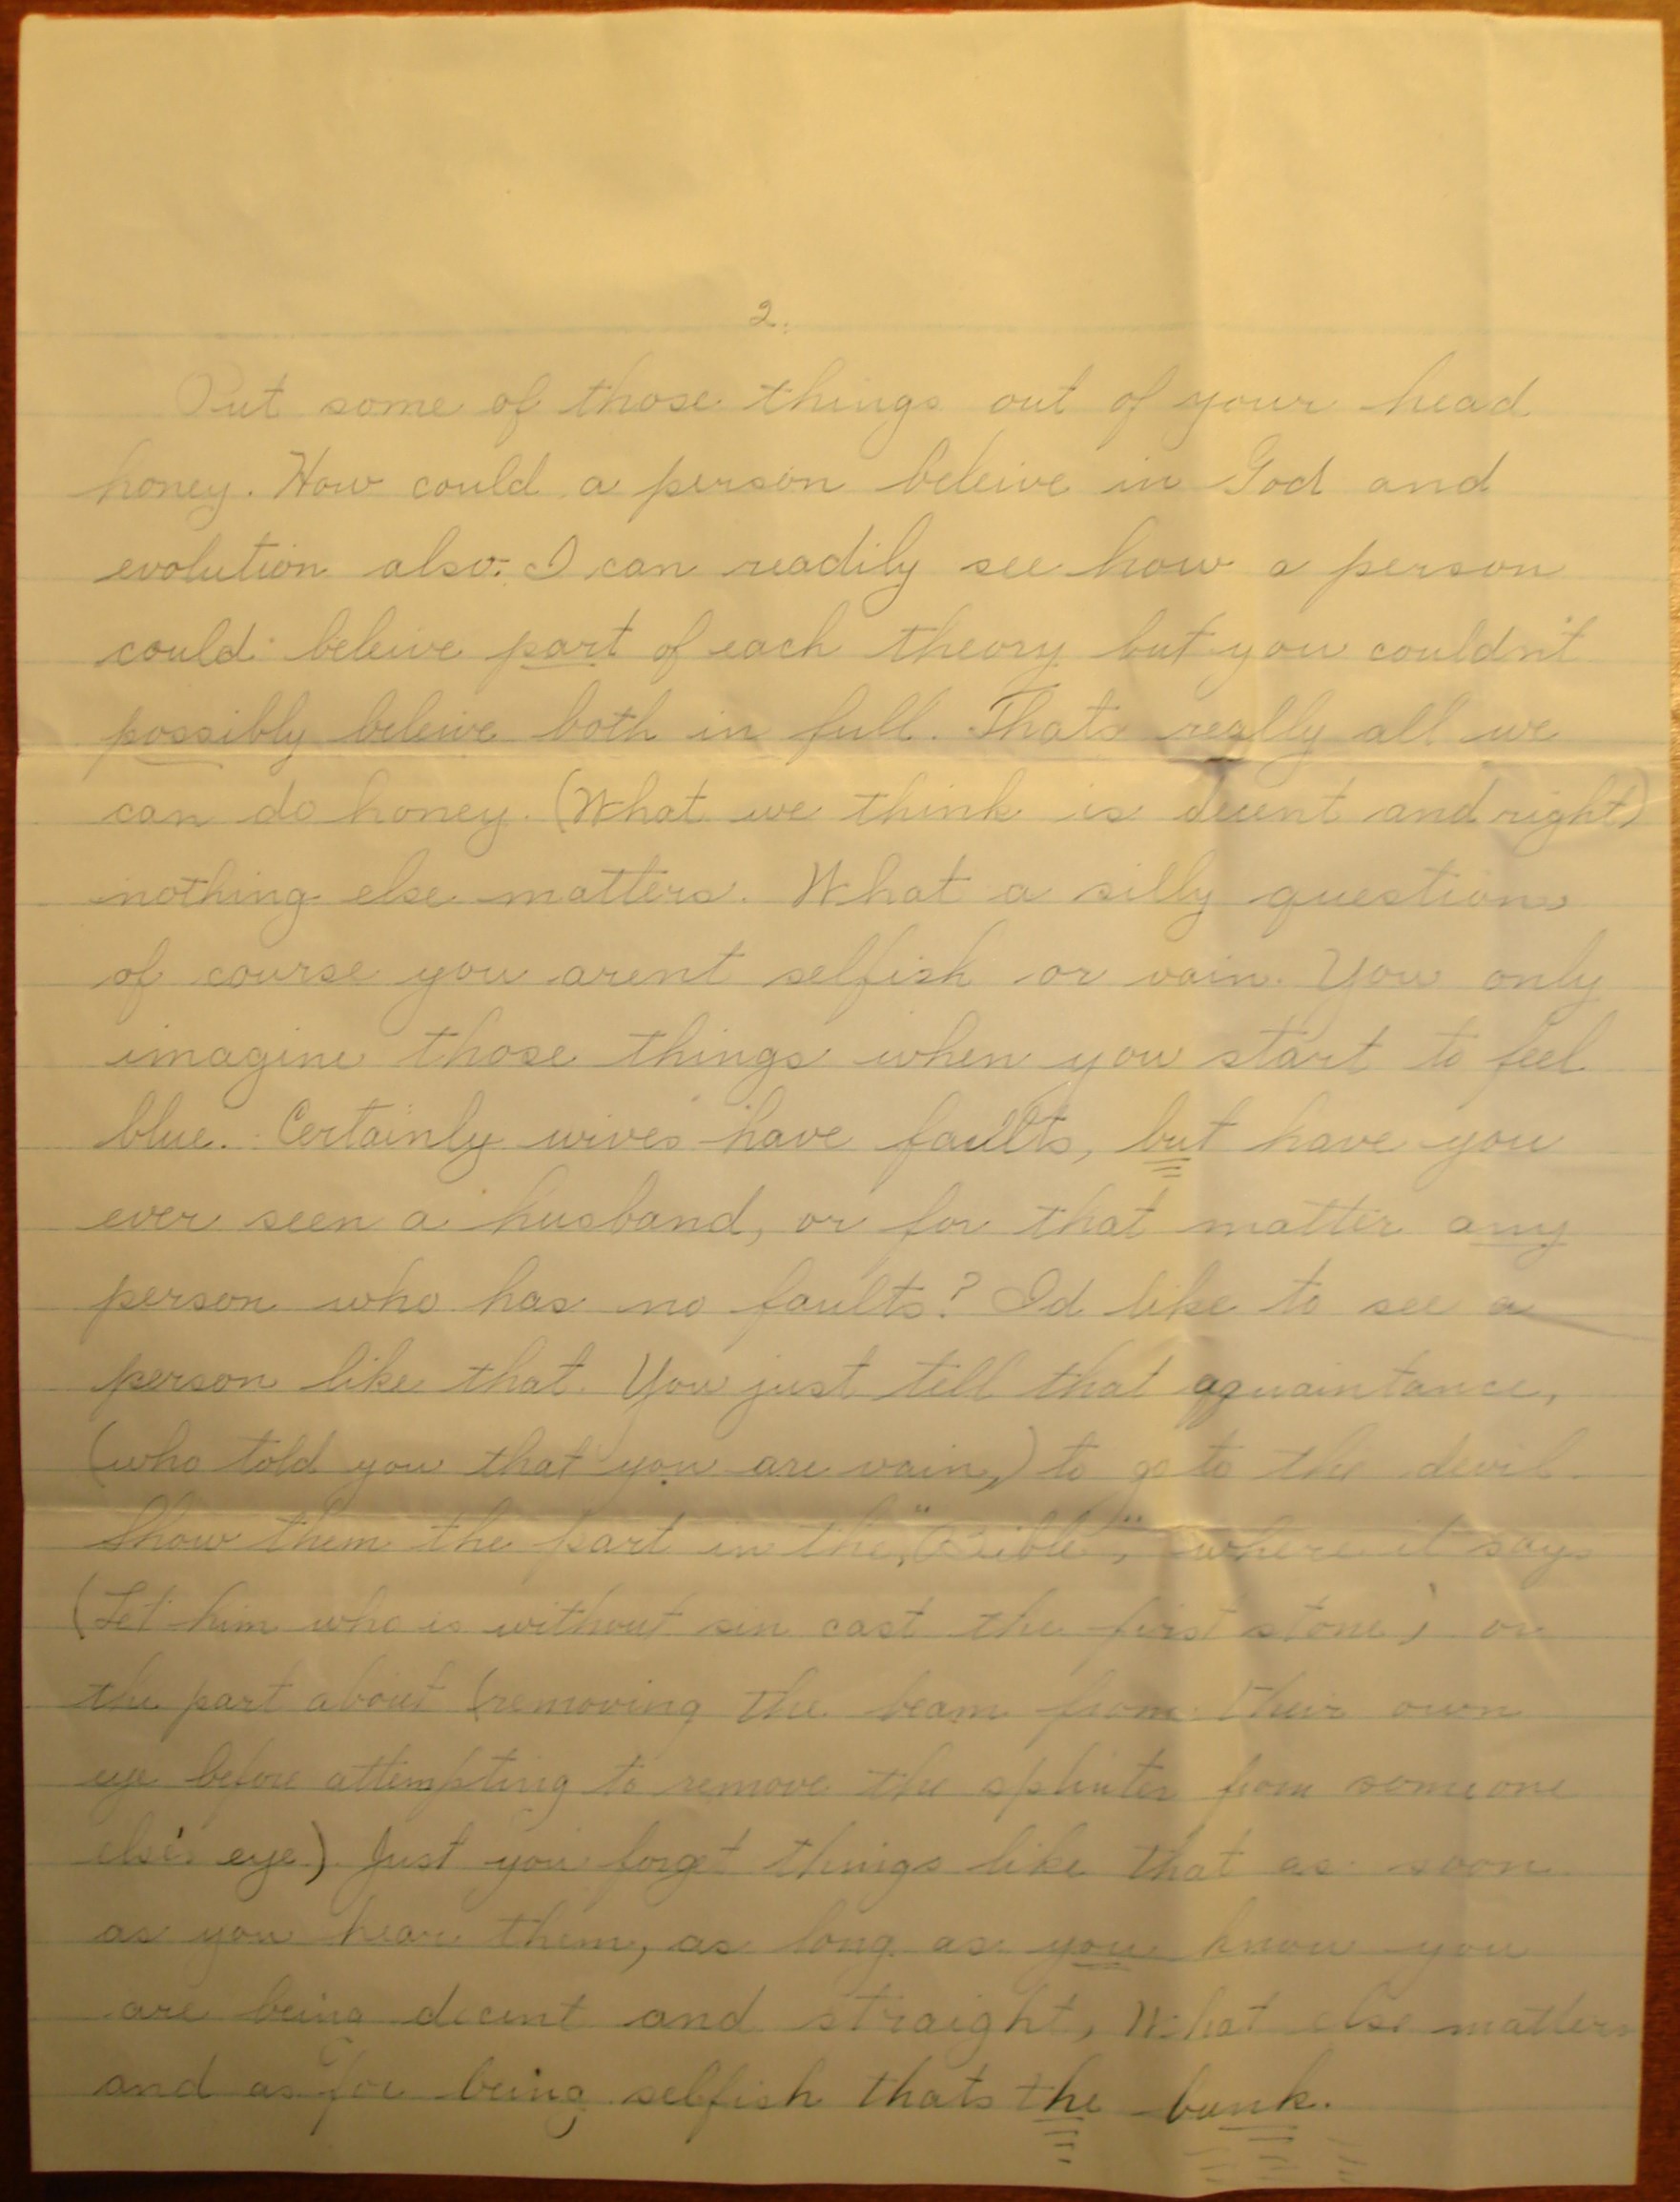 2.
Put some of those things out of your head
honey. How could a person beleive in God and
evolution also. I can readily see how a person
could beleive part of each theory but you couldn't
possibly beleive both in full. Thats really all we
can do honey. (What we think is decent and right)
nothing else matters. What a silly question
of course you arent selfish or vain. You only
imagine those things when you start to feel
blue. Certainly wives have faults, but have you
ever seen a husband, or for that matter any
person who has no faults? Id like to see a
person like that. You just tell that aquaintance,
(who told you that you are vain,) to go to the devil.
Show them the part in the, "Bible", where it says
(Let him who is without sin cast the first stone) or
the part about (removing the beam from their own
eye before attempting to remove the splinter from someone
else's eye) Just you forget things like that as soon
as you hear them, as long as you know you
are being decent and straight, What else matters
and as for being selfish thats the bunk.